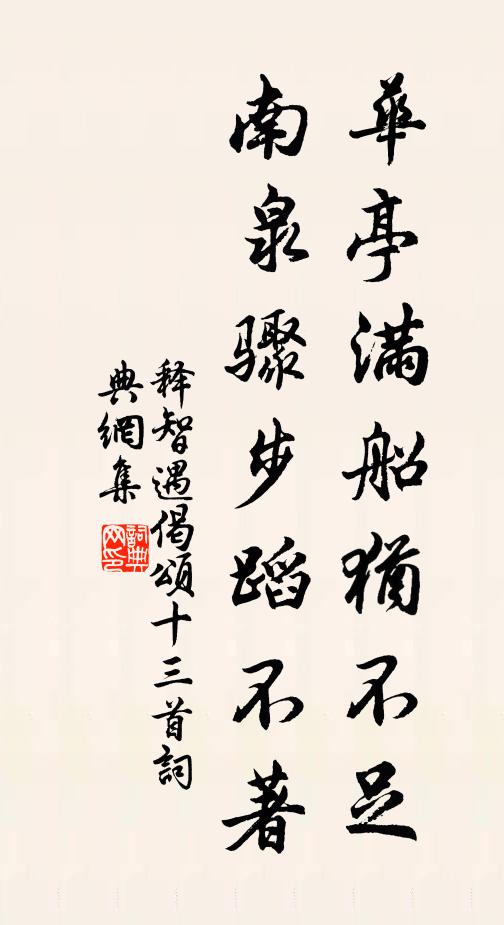 華亭滿船猶不足
南泉驟步蹈不著
释智遇偈頌十三首詞
典網集
詞典
网印